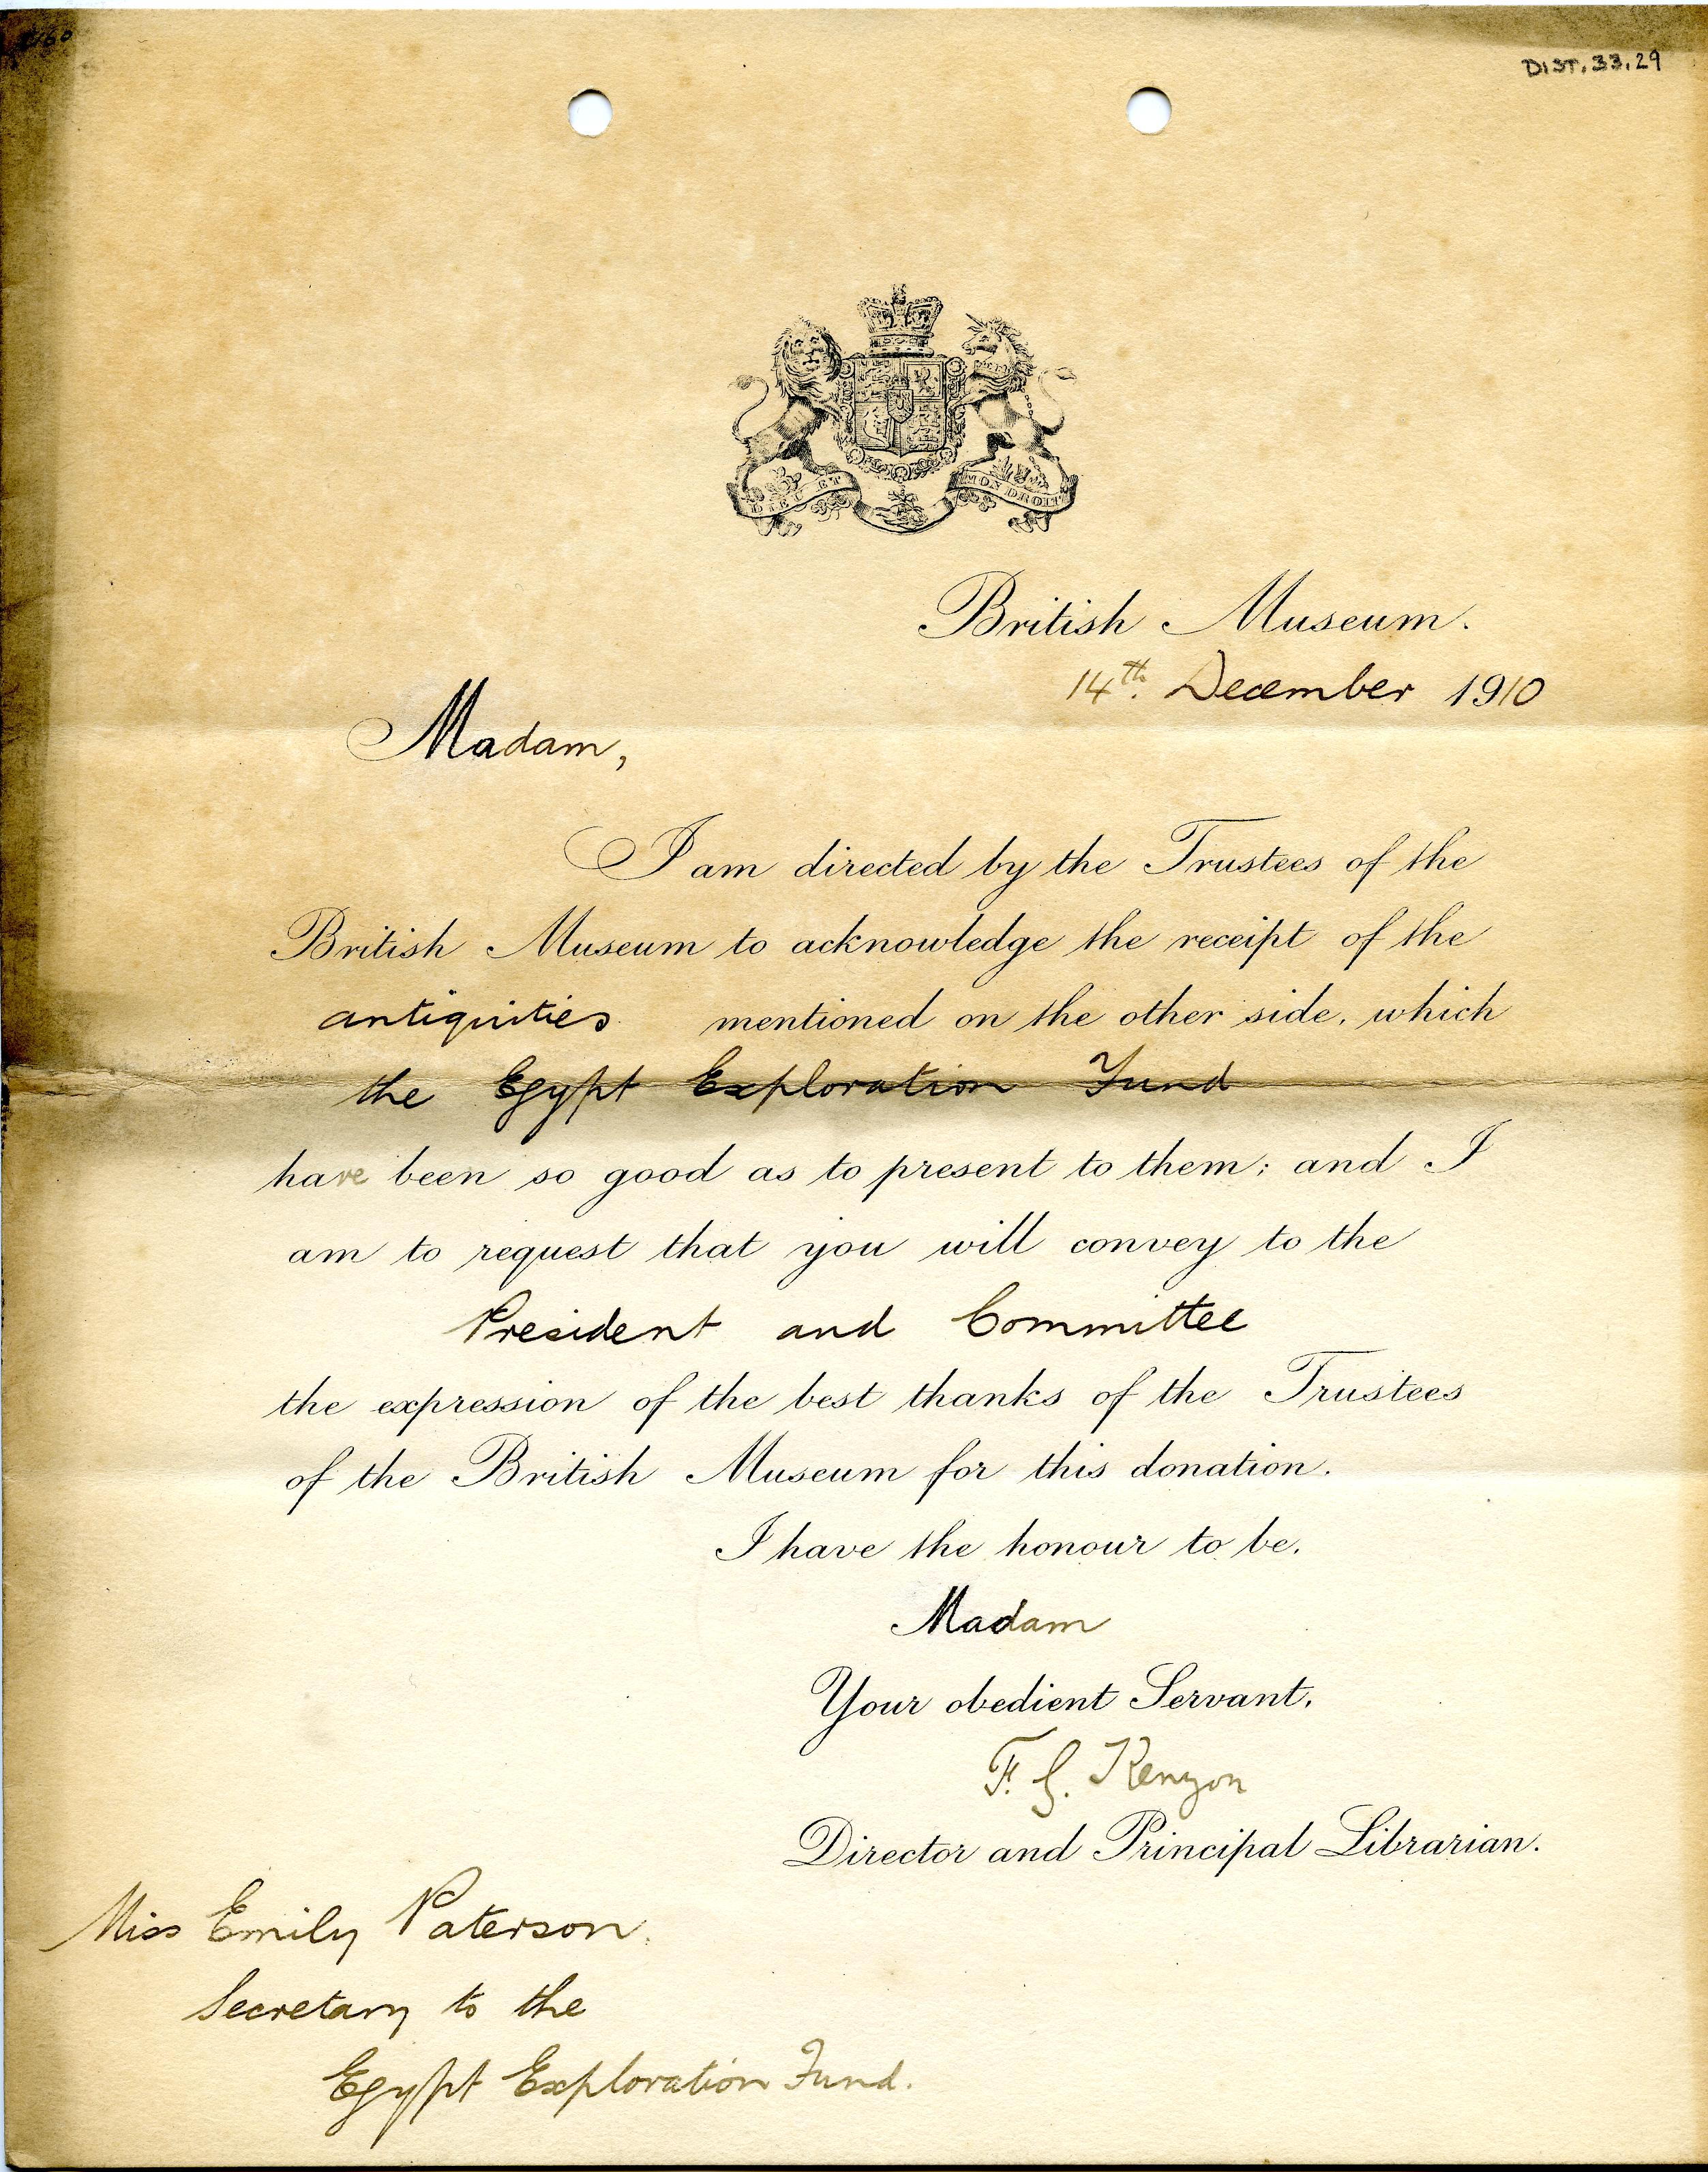 DIST.33.29
DIEU ET MON DROIT
British Museum.
14th. December 1910
Madam,
I am directed by the Trustees of the
British Museum to acknowledge the receipt of the
antiquities mentioned on the other side, which
the Egypt Exploration Fund
have been so good as to present to them; and I
am to request that you will convey to the
President and Committee
the expression of the best thanks of the Trustees
of the British Museum for this donation.
I have the honour to be,
Madam
Your obedient Servant,
F. G. Kenyon
Director and Principal Librarian.
Miss Emily Paterson.
Secretary to the
Egypt Exploration Fund.